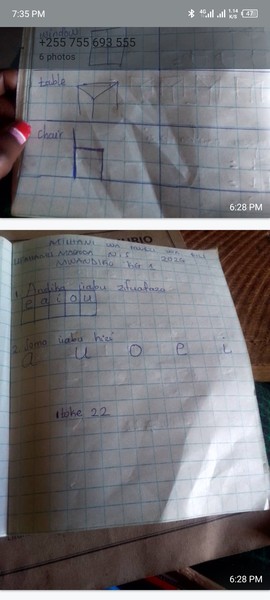 7:35 PM
window
+255 755 693 555
6 photos
table
chair
6:28 PM
MTIHANI WA
2024
MWANDIKO
1. Andika irabu zifuatazo
e a i o u
2. Soma irabu hizi
a u o e i
Itoke 22
6:28 PM